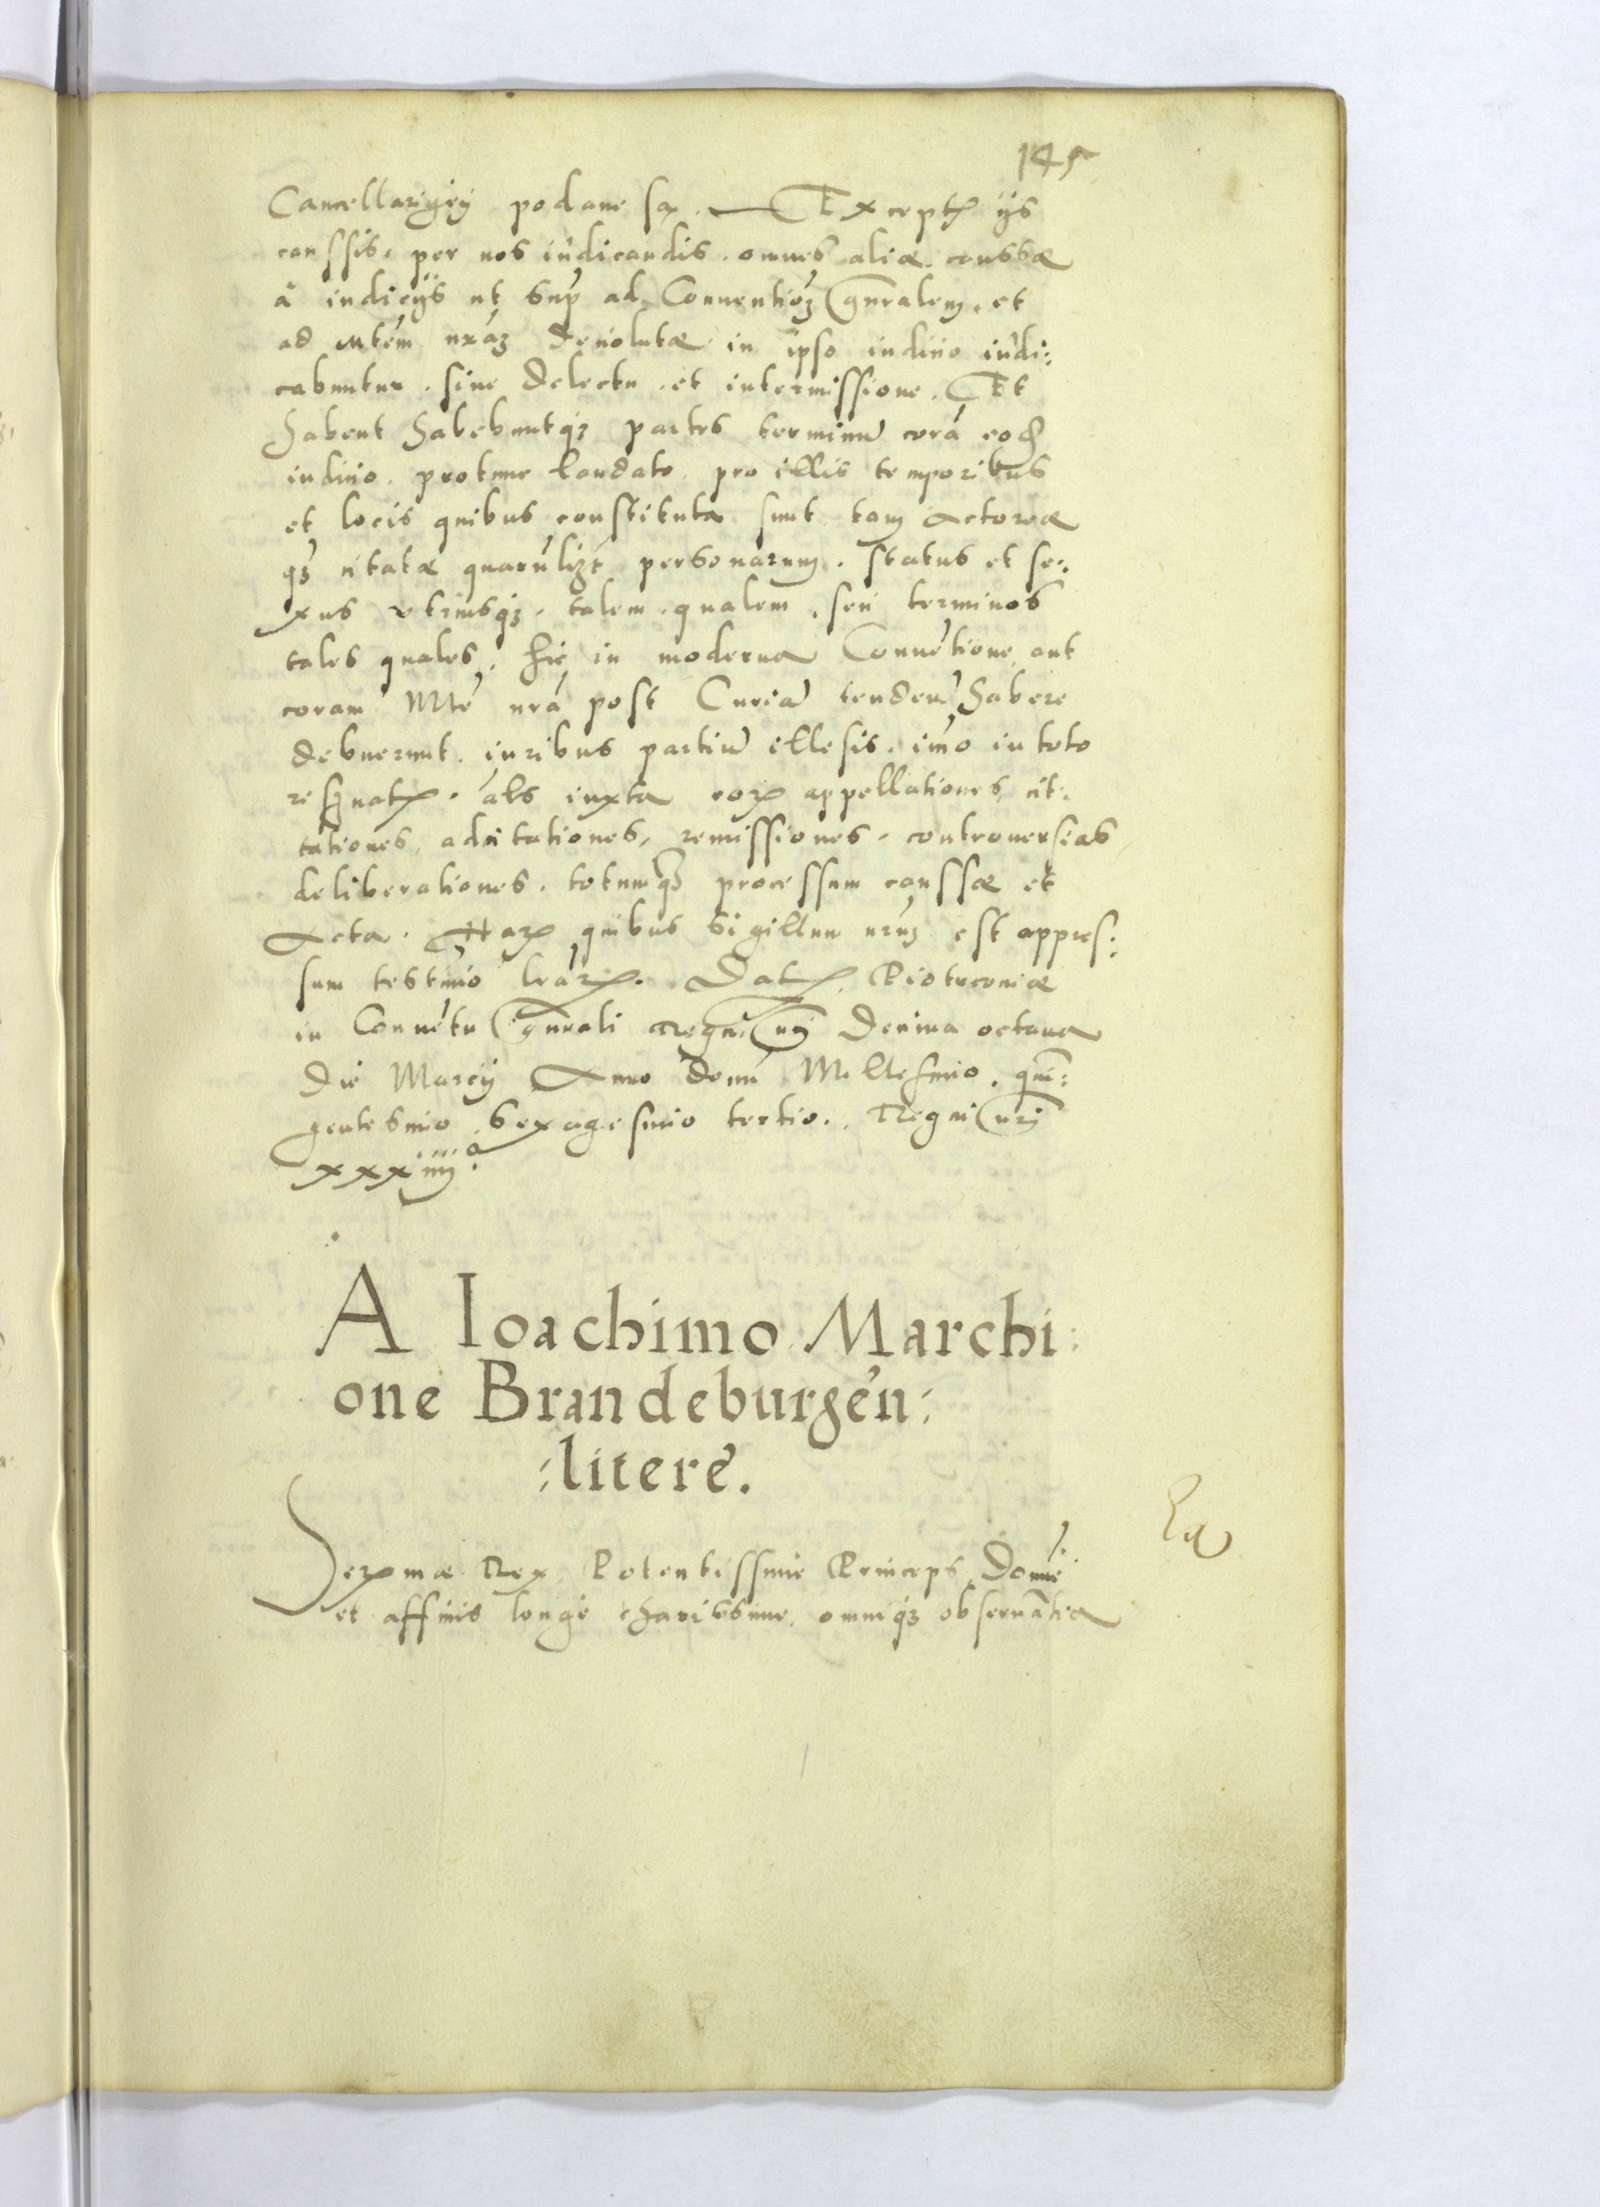 145
Cancellarijej podane są. Exceptꝭ ijs
caussis. per nos iudicandis. omnes aliæ. caussæ
a iudicijs ut sup ad Conuentioꝫ gn̄ralem. et
ad Mtem nráꝫ deuolutæ in ipso iuditio iudi:
cabuntur. sine delectu. et intermissione. Et
habent habebuntqꝫ partes terminũ corá eod
iuditio. protunc laudato. pro illis temporibus
et locis quibus constituta sunt tam Actoreæ
qꝫ citatæ quarulizt personarum. status et se:
xus vtriusqꝫ. talem qualem. seu terminos
tales quales. hic in moderna Conuẽtione aut
coram Mte nrá post Curiã tendeñ habere
debuerunt. iuribus partiũ illesis. imo in toto
reseruatꝭ. als iuxta eoꝝ appellationes cit:
tationes, adcitationes, remissiones. controuersias
deliberationes. totumqꝫ processum caussæ et
Acta. Haꝝ quibus sigillum nrũꝫ est appres:
sum testimo lraꝝ. Datꝭ. Piotrconiæ
in Conuẽtu gn̄rali Regni nrj Decima octaua
die Marcij Anno domi Millesimo. quin:
gentesimo. sexagesimo tertio.. Regni nrj
xxxiiij°
A Ioachimo Marchi:
one Brandeburgen:
:litere.
Serꝫmæ Rex, Potentissime Princeps, Domie
et affinis longe charissime, omniqꝫ obseruãtia